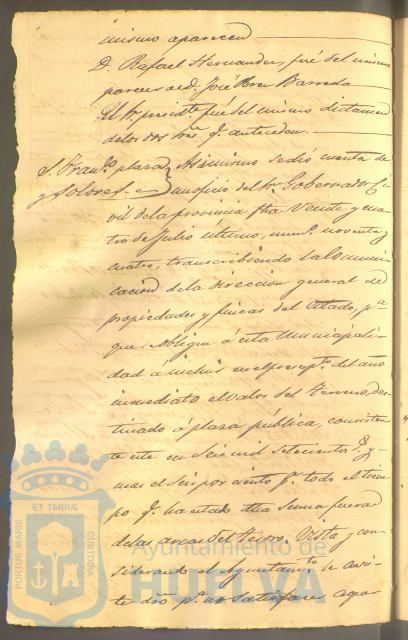 mismo aparecer
D. Rafael Hernandez, fué del mismo
parecer de D. José Rea Barreda
El Sr. preside.te fué del mismo dictamen
de los dos Sres. q.e anteceden
S. Fran.co plaza
y Solares
Asimismo se dió cuenta de
un oficio del Sr. Gobernador Ci-
vil de la provincia fha. veinte y cua-
tro de Julio ultimo, num.o noventa y
cuatro, transcribiendo la Comuni-
cacion de la direccion general de
propiedades y fincas del Estado, p.a
que obligue á esta Municipali-
dad á incluir en el presup.to del año
inmediato el valor del terreno, des-
tinado á plaza pública, consisten-
te este en Seis mil setecientos
mas el seis por ciento p.r todo el tiem-
po q.e ha estado dha Suma fuera
de las arcas del tesoro. Vista y con-
siderando el Ayuntam.to le asis-
te dro p.a no satisfacer aque-
PORTUS MARIS ET TERRÆ CUSTODIA
Ayuntamiento de
HUELVA